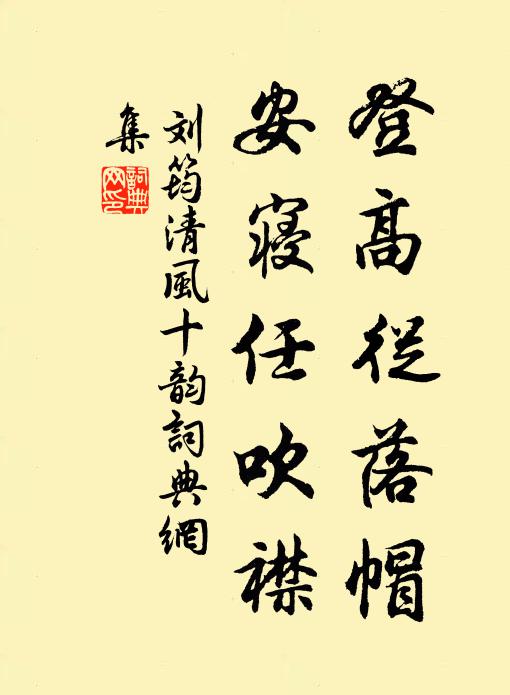 登高從落帽
安寝任吹襟
刘筠清風十韵詞典網
集
詞典网印